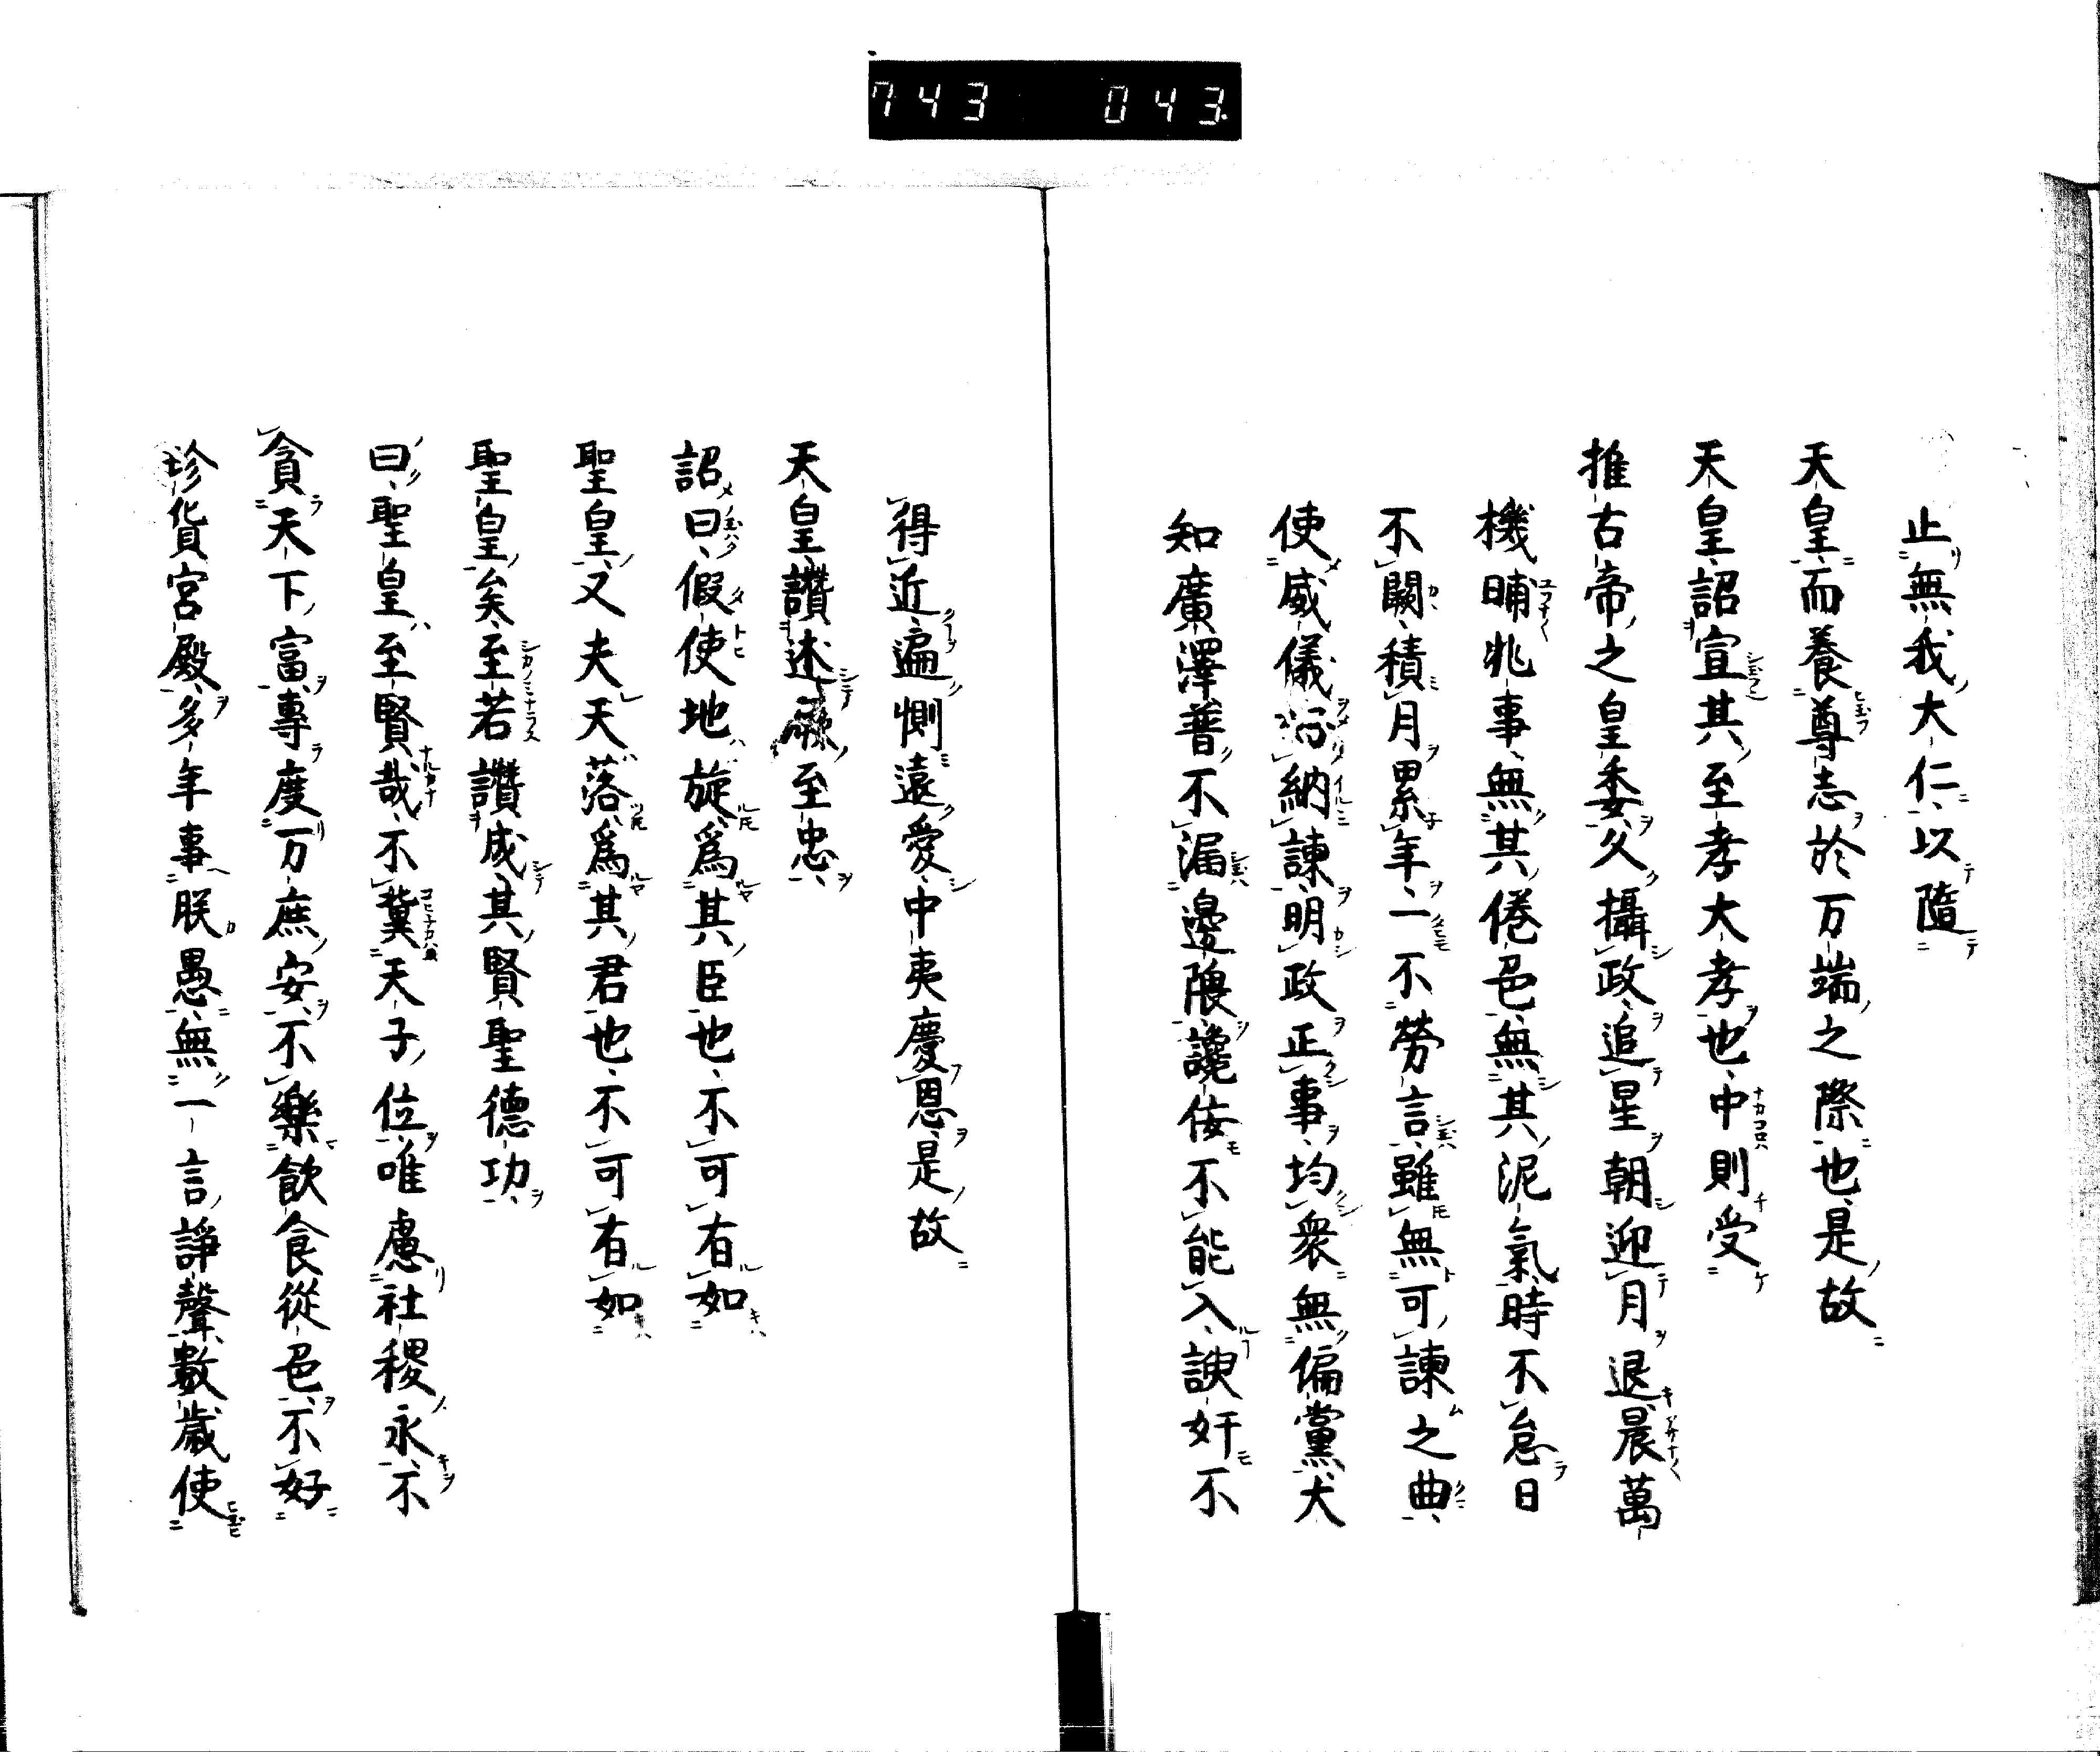 743 043
止無我大仁以隨
天皇而養尊志於万端之際也是故
天皇詔宣其至孝大孝也中則受
推古帝之皇委久攝政追星朝迎月退晨萬
機晡兆事無其倦色無其泥氣時不怠日
不闕積月累年一不勞言雖無可諫之曲
使威儀納諫明政正事均衆無偏黨犬
知廣澤普不漏邊隈讒佞不能入諛奸不
得近遍惻遠愛中夷慶恩是故
天皇讚述厥至忠
詔曰假使地旋爲其臣也不可有如
聖皇又夫天落爲其君也不可有如
聖皇矣至若讚成其賢聖德功
曰聖皇至賢哉不冀天子位唯慮社稷永不
貪天下富專度万庶安不樂飲食從色不好
珍貨宮殿多年事朕愚無一言諍聲數歲使